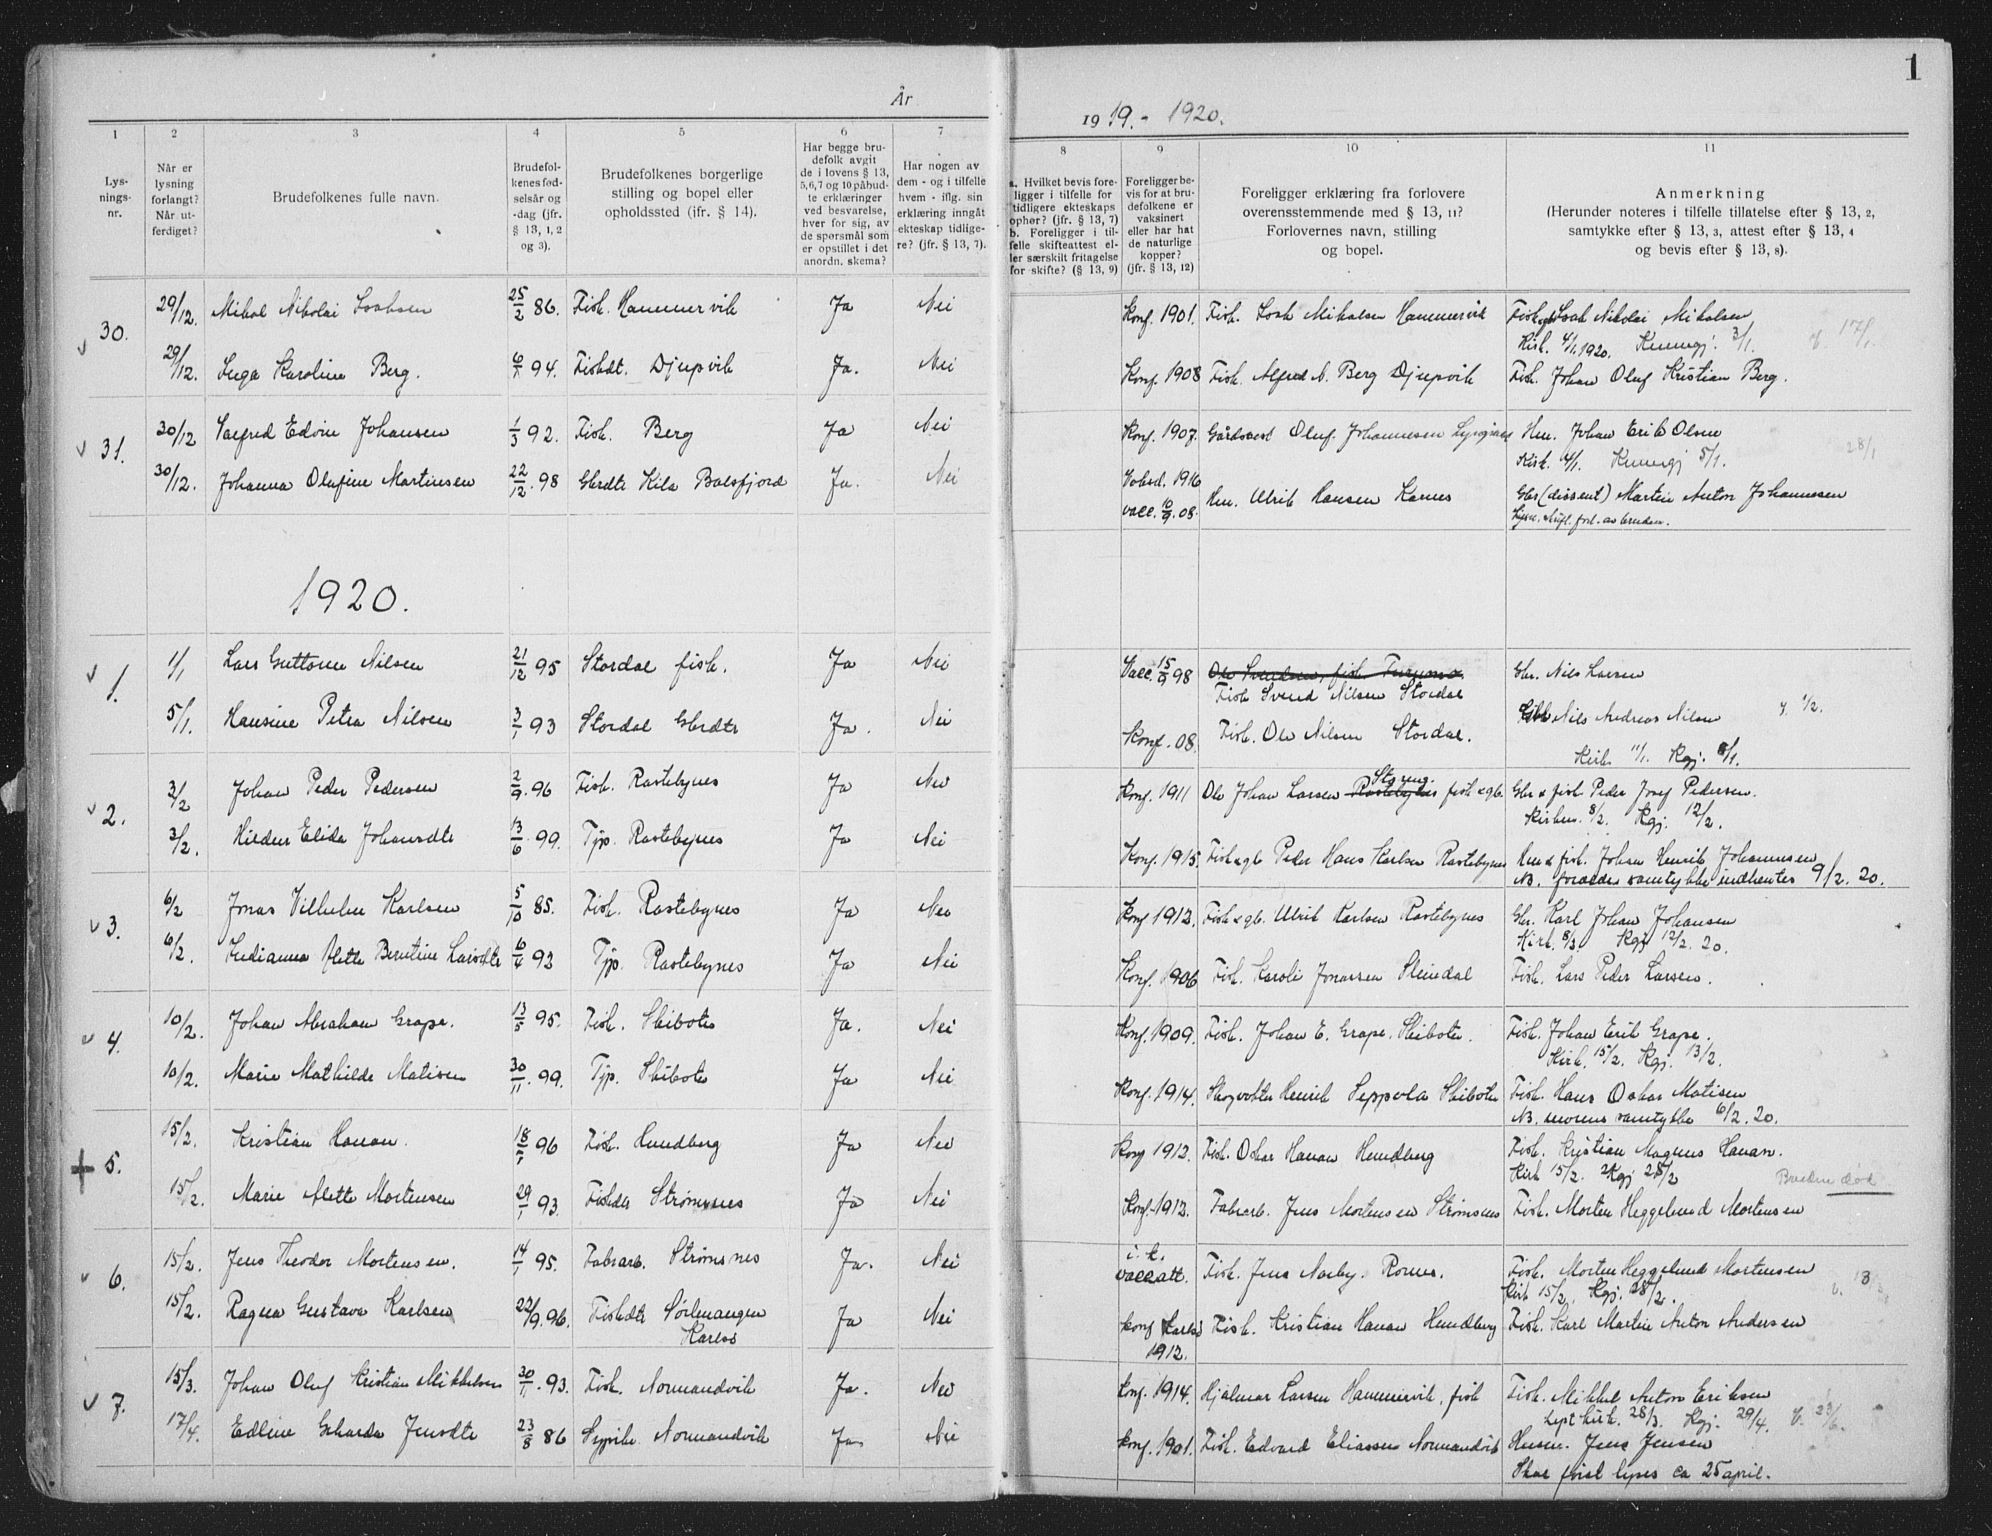 1
År
19 19. - 1920.
1 2 3 4 5 6 7 8 9 10 11
Lys-
nings-
nr.
Når er
lysning
forlangt?
Når ut-
ferdiget?
Brudefolkenes fulle navn.
Brudefol-
kenes fød-
selsår og
-dag (jfr.
§ 13, 1, 2
og 3).
Brudefolkenes borgerlige
stilling og bopel eller
opholdssted (jfr. § 14).
Har begge bru-
defolk avgit
de i lovens § 13,
5, 6, 7 og 10 påbud-
te erklæringer
ved besvarelse,
hver for sig, av
de spørsmål som
er opstillet i det
anordn. skema?
Har nogen av
dem - og i tilfelle
hvem - iflg. sin
erklæring inngått
ekteskap tidlige-
re? (jfr. § 13, 7).
a. Hvilket bevis fore-
ligger i tilfelle for
tidligere ekteskaps
ophør? (jfr. § 13, 7)
b. Foreligger i til-
felle skifteattest el-
ler særskilt fritagelse
for skifte? (§ 13, 9)
Foreligger be-
vis for at bru-
defolkene er
vaksinert
eller har hat
de naturlige
kopper?
(jfr. § 13, 12)
Foreligger erklæring fra forlovere
overensstemmende med § 13, 11?
Forlovernes navn, stilling
og bopel.
Anmerkning
(Herunder noteres i tilfelle tillatelse efter § 13, 2,
samtykke efter § 13, 3, attest efter § 13, 4
og bevis efter § 13, 8).
30. 29/12. Mikal Nikolai Isaksen 25/2 86. Fisk. Hammervik Ja Nei Konf. 1901. Fisk. Isak Mikalsen Hammervik Fisk. Isak Nikolai Mikalsen
Kirk. 4/1. 1920. Kunngj. 3/1. 17/1.
29/12. Inga Karoline Berg. 6/1 94. Fiskdt. Djupvik Ja. Nei Konf. 1908 Fisk. Alfred N. Berg Djupvik Fisk. Johan Oluf Kristian Berg.
31. 30/12 Edvin Johansen 1/3 92. Fisk. Berg Ja Nei Konf. 1907. Oluf Johannesen Hm. Johan Erik Olsen
Kirk. 4/1. Kunngj 5/1. 28/1
30/12. Johanna Olufine Martinsen 22/12. 98 Gbrdtr Kila Balsfjord Ja. Nei 1916
vacc. 10/9. 08. Hm. Ulrik Hansen Karnes Gbr (dissent) Martin Anton Johannessen
av bruden.
1920.
1. 1/1 Lars Guttorm Nilsen 21/12 95 Stordal fisk. Ja Nei Vacc. 15/9 98 Ole Svendsen, fisk Furumo
Fisk Svend Nilsen Stordal Gbr. Nils Larsen
5/1. Hansine Petra Nilsen 3/1 93 Stordal Gbrdtr Ja. Nei Konf. 08. Fisk. Ole Nilsen Stordal. Nils Andreas Nilsen 1/2.
Kirk 11/1. Kgj. 8/1.
2. 3/2 Johan Peder Pedersen 2/9. 96 Fisk. Rastebynes Ja Nei Konf. 1911 Ole Johan Larsen Rastebynes Storeng. fisk & gb. Gbr & fisk Peder Josef Pedersen.
Kirken. 8/2. Kgj. 12/2.
3/2. Hildur Elida Johansdtr 13/6. 99. Tjp. Rastebynes Ja Nei Konf. 1915. Fisk & gb Peder Hans Karlsen Rastebynes Hm & fisk. Johan Henrik Johannesen
NB. foraldes samtykke indhentes 9/2. 20.
3. 6/2 Jonas Vilhelm Karlsen 5/10 85. Fisk. Rastebynes Ja Nei Konf 1912. Fisk & gb. Ulrik Karlsen Rastebynes Gbr. Karl Johan Johansen
Kirk. 8/2. Kgj 12/2. 20.
6/2. Indianna Mette Berntine Larsdtr 6/4 93 Tjp. Rastebynes Ja Nei Konf. 1906 Fisk. Karoli Jonassen Steindal Fisk. Lars Peder Larsen.
4. 10/2. Johan Abraham Grape. 13/5 95. Fisk. Skibotn Ja. Nei Konf. 1909. Fisk. Johan E. Grape. Skibotn. Fisk. Johan Erik Grape.
Kirk. 15/2. Kgj. 13/2.
10/2. Marie Mathilde Matisen 30/11. 99. Tjp. Skibotn Ja Nei Konf. 1914. Skogvokter Henrik Seppola Skibotn Fisk. Hans Oskar Matisen
NB. morens samtykke 6/2. 20.
5. 15/2. Kristian Hanan. 18/1 96 Fisk. Hundberg Ja Nei Konf 1912. Fisk. Oskar Hanan Hundberg Fisk. Kristian Magnus Hanan.
Kirk 15/2. Kgj 28/2 Bruden død
15/2. Marie Alette Mortensen 29/1 93. Fiskdtr Strømsnes Ja Nei Konf. 1912. Fabrarb. Jens Mortensen Strømsnes Fisk. Morten Heggelund Mortensen
6. 15/2. Jens Theodor Mortensen. 14/1 95. Fabrarb. Strømsnes Ja. Nei i. k.
vacc att. Fisk. Jens Nor by. Fisk. Morten Heggelund Mortensen
Kirk 15/2. Kgj. 28/2.
15/2. Ragna Gustava Karlsen 22/9. 96. Fiskdtr Sørlenangen
Karlsø Ja Nei Konf Karlsø
1912. Fisk. Kristian Hanan Hundberg Fisk. Karl Martin Anton Andersen
7. 15/3. Johan Oluf Kristian Mikkelsen 30/1. 93. Fisk. Normandvik Ja. Nei Konf. 1914. Hjalmar Larsen Hammervik, fisk Fisk. Mikkel Anton Eriksen
kirk. 28/3. Kgj. 29/4. 23/6.
17/4. Edline Gekarda Jensdtr 23/8 86 Sypike Normandvik Ja Nei Konf. 1901. Fisk. Edvard Eliassen Normandvik Husm. Jens Jensen
Skal først lyses ca 25 april.